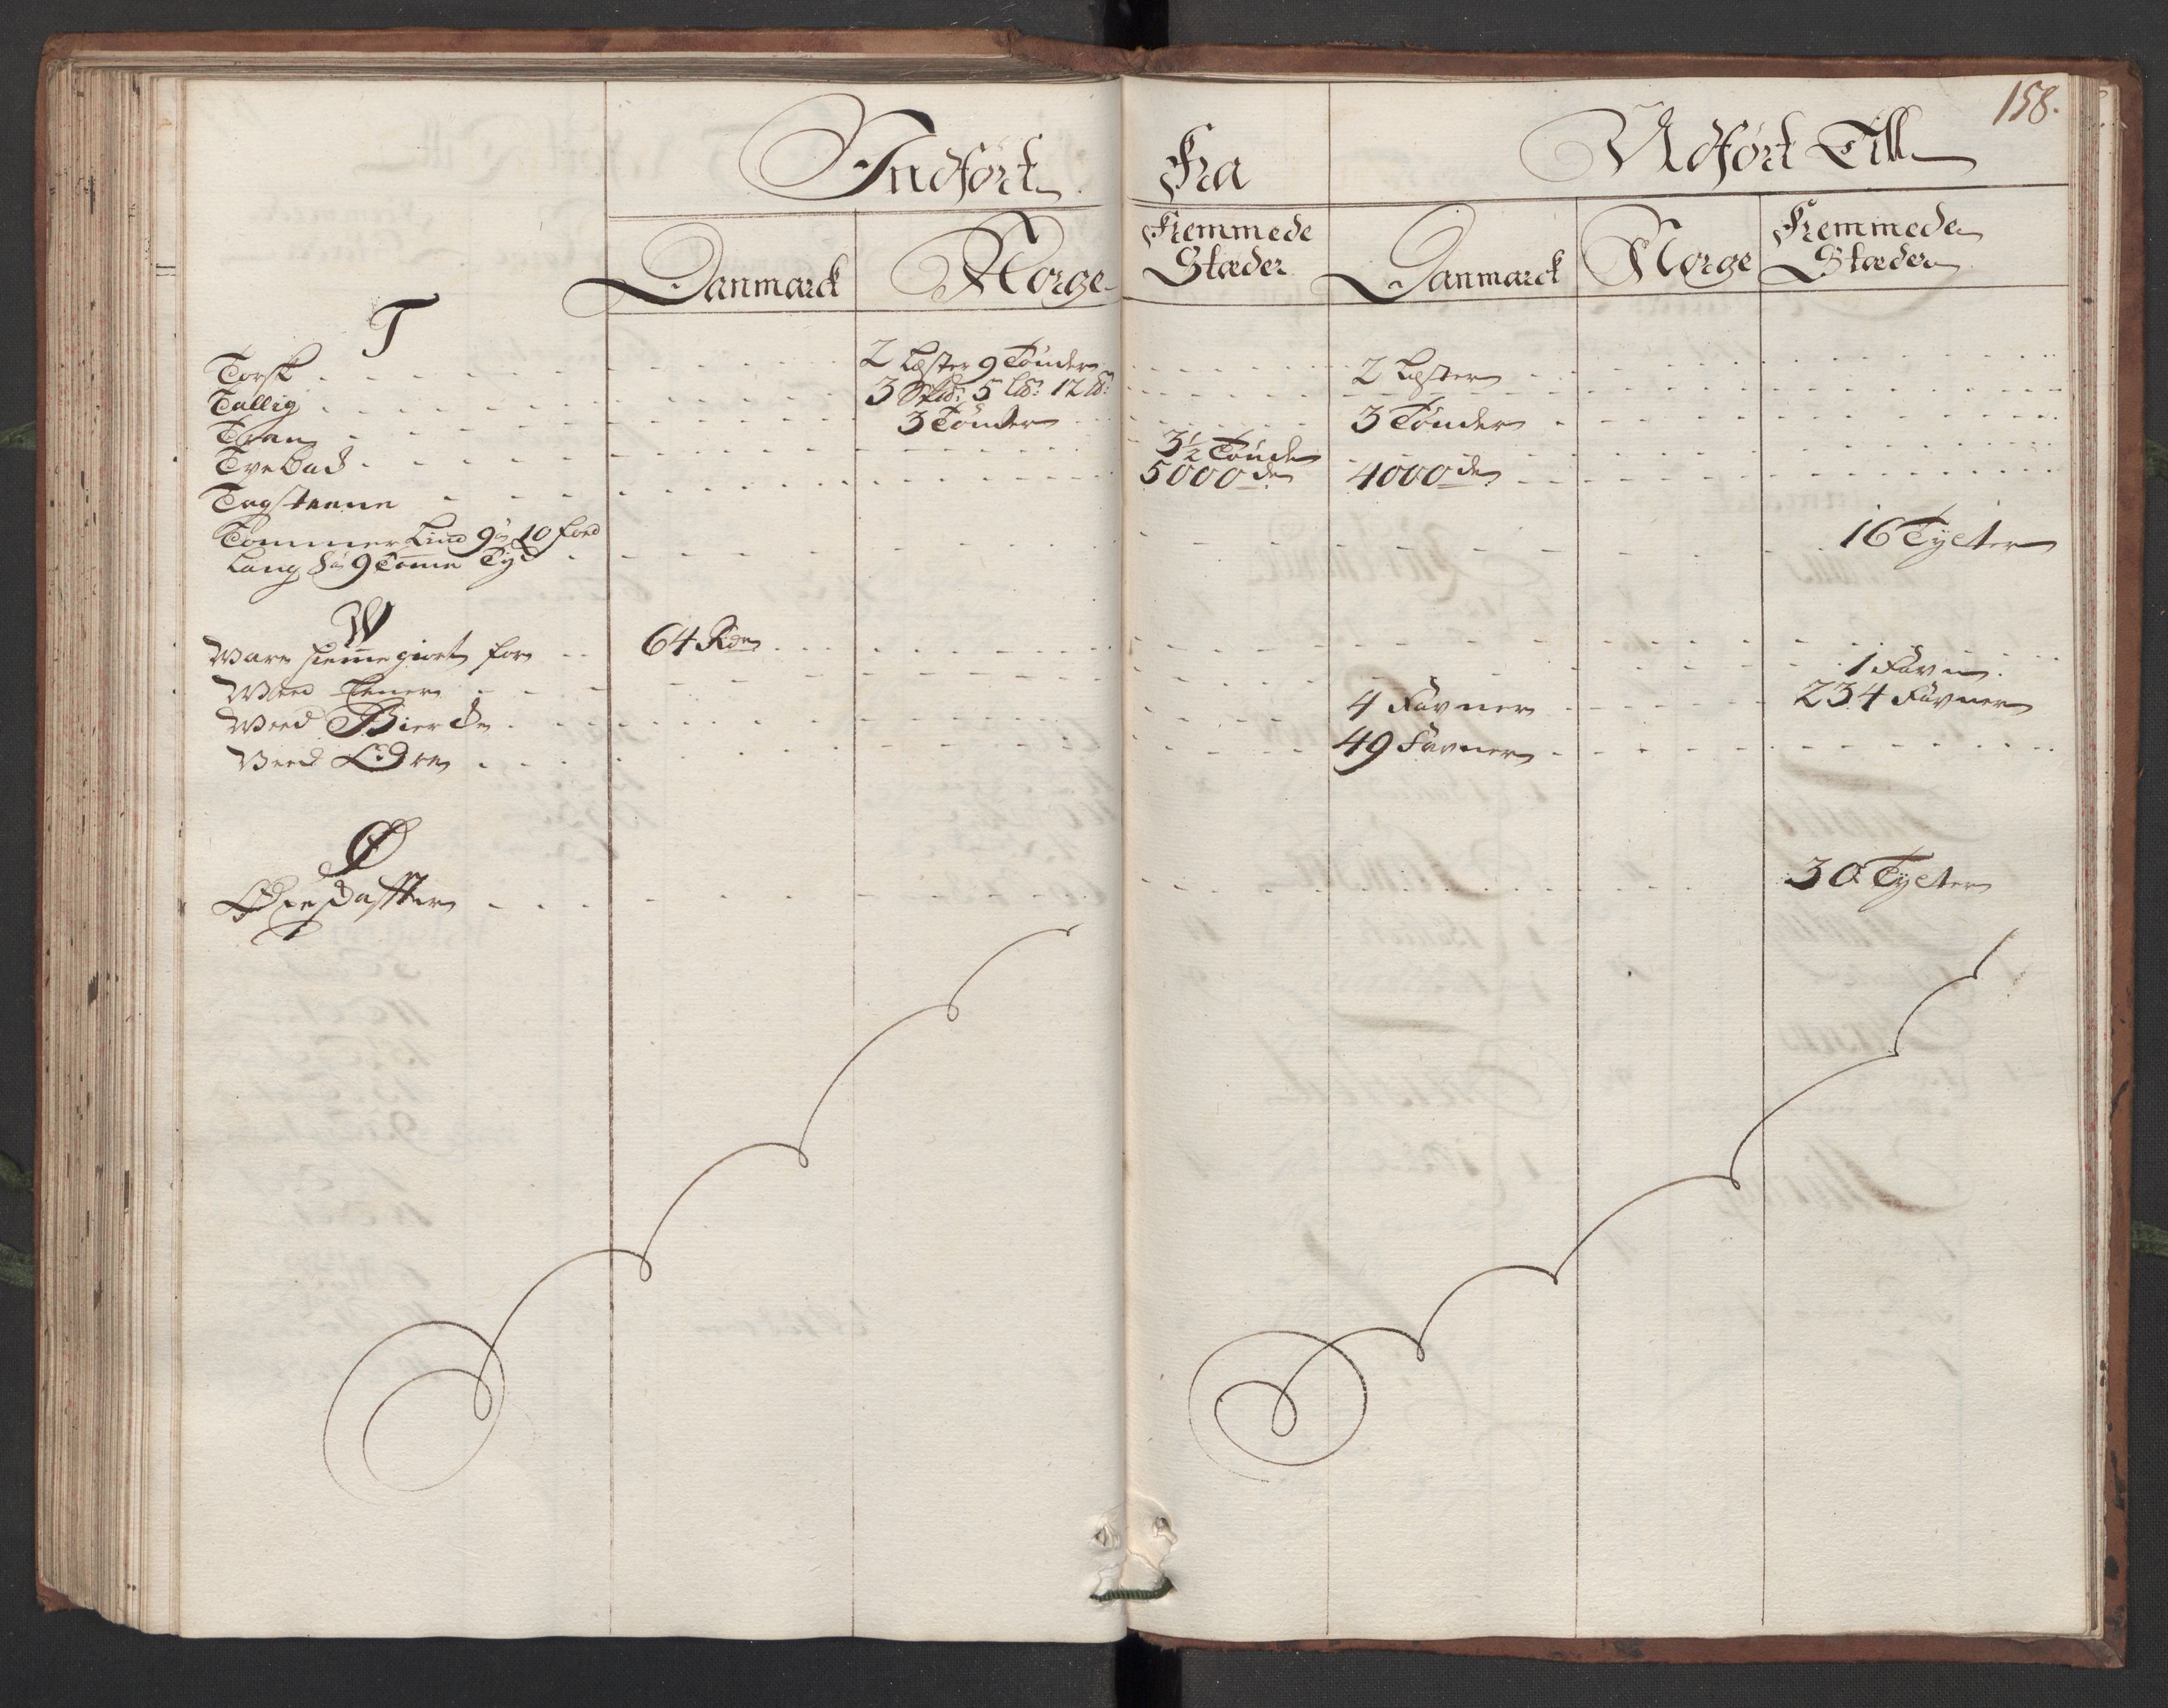 158.
Indført Fra Udført Till
Danmarck Norge Fremmede Stæder Danmarck Norge Fremmede Stæder
T
Torsk - - - 2 Læster 9 Tønder - - - 2 Læster - - -
Tallig - - - 3 Sk℔: 5 L℔: 12 ℔: - - -
Tran - - - 3 Tønder - - - 3 Tønder - - -
Tvebad - - - 3½ Tønde - - -
Tagsteene - - - 5000de 4000de - - -
Tømmer Lind 9 à 10 foed
Lang 8 à 9 Tomme Tyk - - - 16 Tylter
W
Ware hiemmegiort for - - - 64 Rdr - - -
Weed Eener - - - 1 Favn
Weed Bierke - - - 4 Favner - - - 234 Favner
Veed Eldre - - - 49 Favner - - -
Ø
- - - 30 Tylter